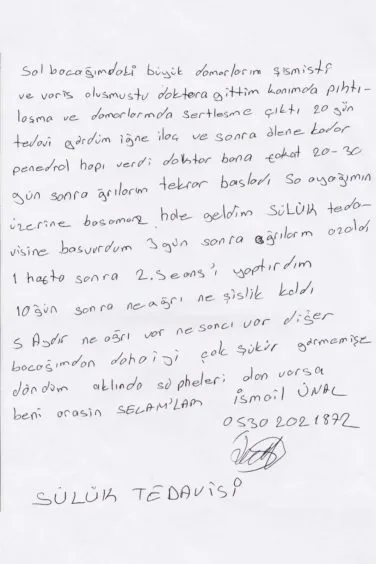 Sol bacağımdaki büyük damarlarım şişmişti
ve varis oluşmuştu doktora gittim kanımda pıhtı-
laşma ve damarlarımda sertleşme çıktı 20 gün
tedavi gördüm iğne ilaç ve sonra ölene kadar
penedrol hapı verdi doktor bana fakat 20-30
gün sonra ağrılarım tekrar başladı So ayağımın
üzerine basamaz hale geldim SÜLÜK teda-
visine başvurdum 3 gün sonra ağrılarım azaldı
1 hafta sonra 2. Seans'ı yaptırdım
10 gün sonra ne ağrı ne şişlik kaldı
5 Aydır ne ağrı var ne sancı var diğer
bacağımdan daha iyi çok şükür görmemişe
döndüm aklında şüpheleri olan varsa
beni arasin SELAM'LAR İsmail ÜNAL
0530 2021872
SÜLÜK TEDAVİSİ